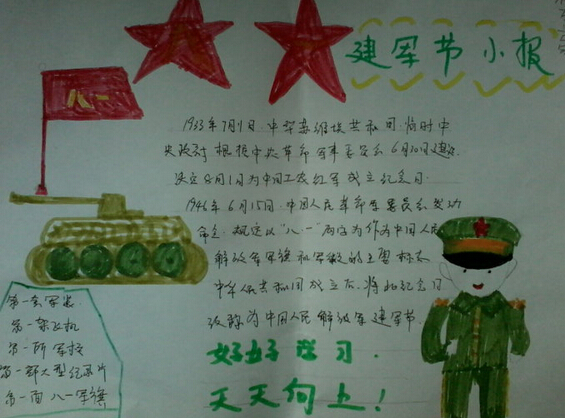 建军节小报
八一
1933年7月1日,中华苏维埃共和国临时中
央政府根据中央革命军事委员会6月30日建议,
决定8月1日为中国工农红军成立纪念日.
1946年6月15日,中国人民革命军事委员会发动
命令,规定以"八一"两字为作为中国人民
解放军军旗和军徽的主要标志
中华人民共和国成立后,将此纪念日
改称为中国人民解放军建军节
第一套军装
第一架飞机
第一所军校
第一部大型纪录片
第一面八一军旗
好好学习.
天天向上!